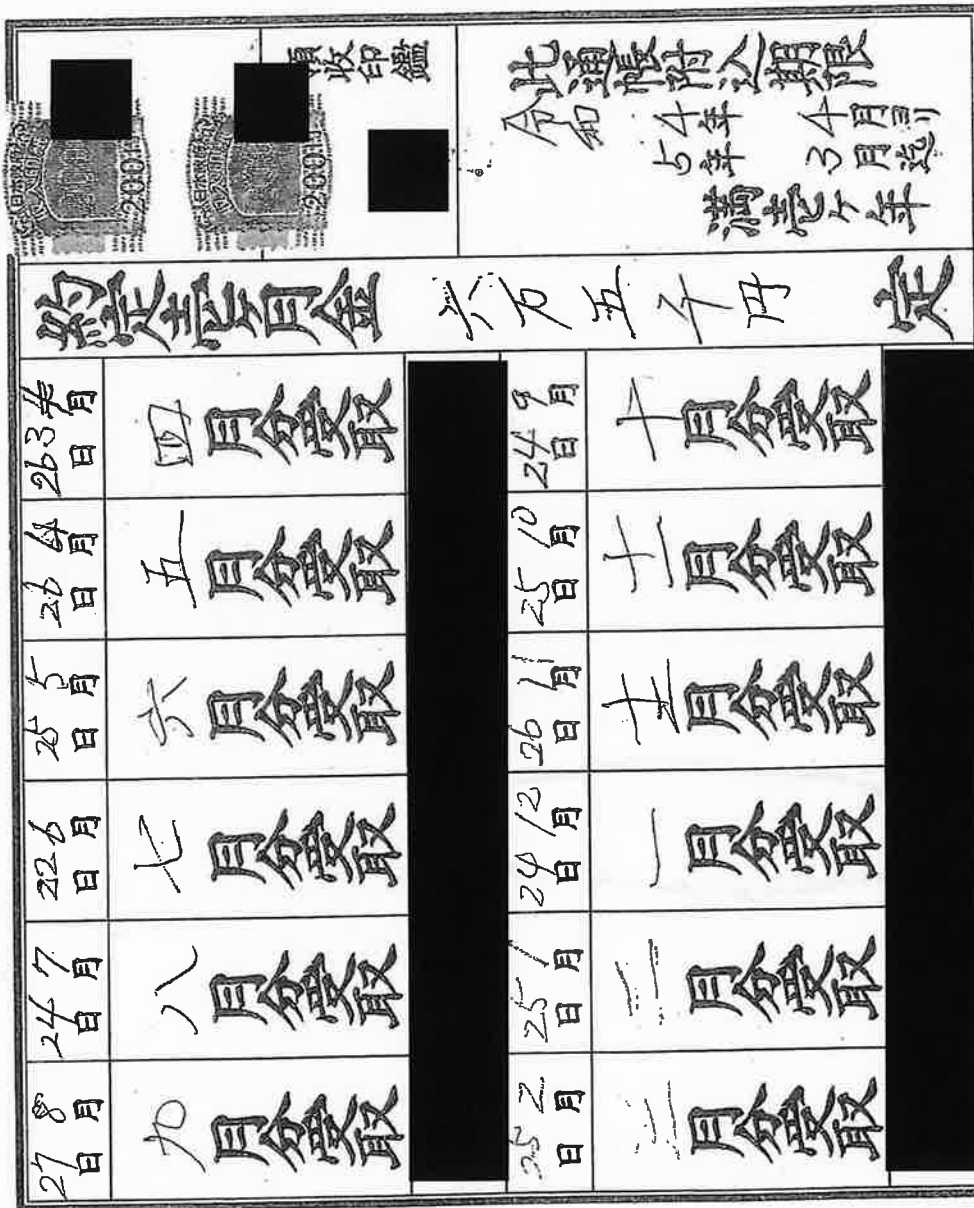 此通帳附込期限
令和 4年 4月ヨリ
5年 3月迄
満壱ケ年
領収印鑑
200
200
約定壱ケ月金 六万五千円 定
3月26日 四月分受取
4月26日 五月分受取
5月25日 六月分受取
6月22日 七月分受取
7月24日 八月分受取
8月27日 九月分受取
9月24日 十月分受取
10月25日 十一月分受取
11月26日 十二月分受取
12月24日 一月分受取
1月25日 二月分受取
2月25日 三月分受取